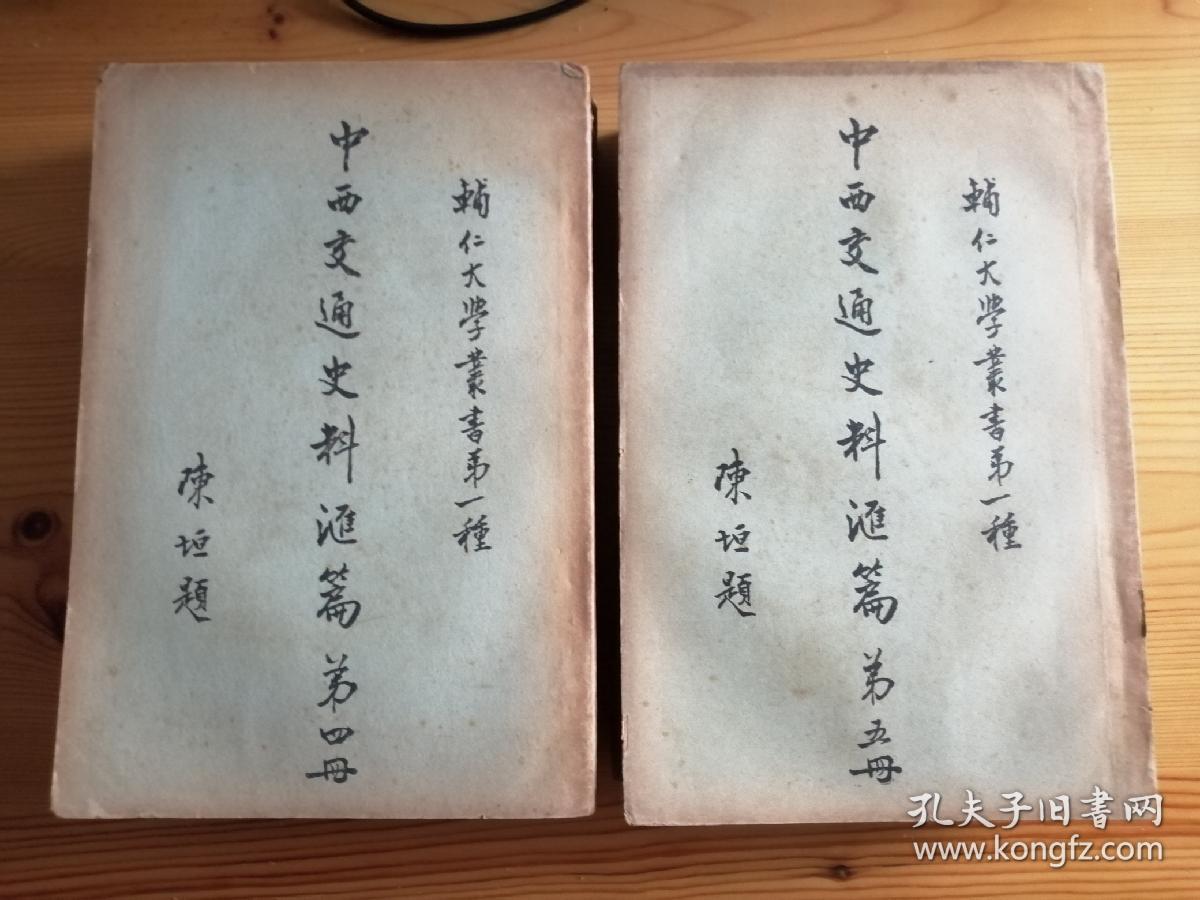 輔仁大學叢書第一種
中西交通史料滙篇第四冊
陳垣題
輔仁大學叢書第一種
中西交通史料滙篇第五冊
陳垣題
孔夫子旧书网
www.kongfz.com